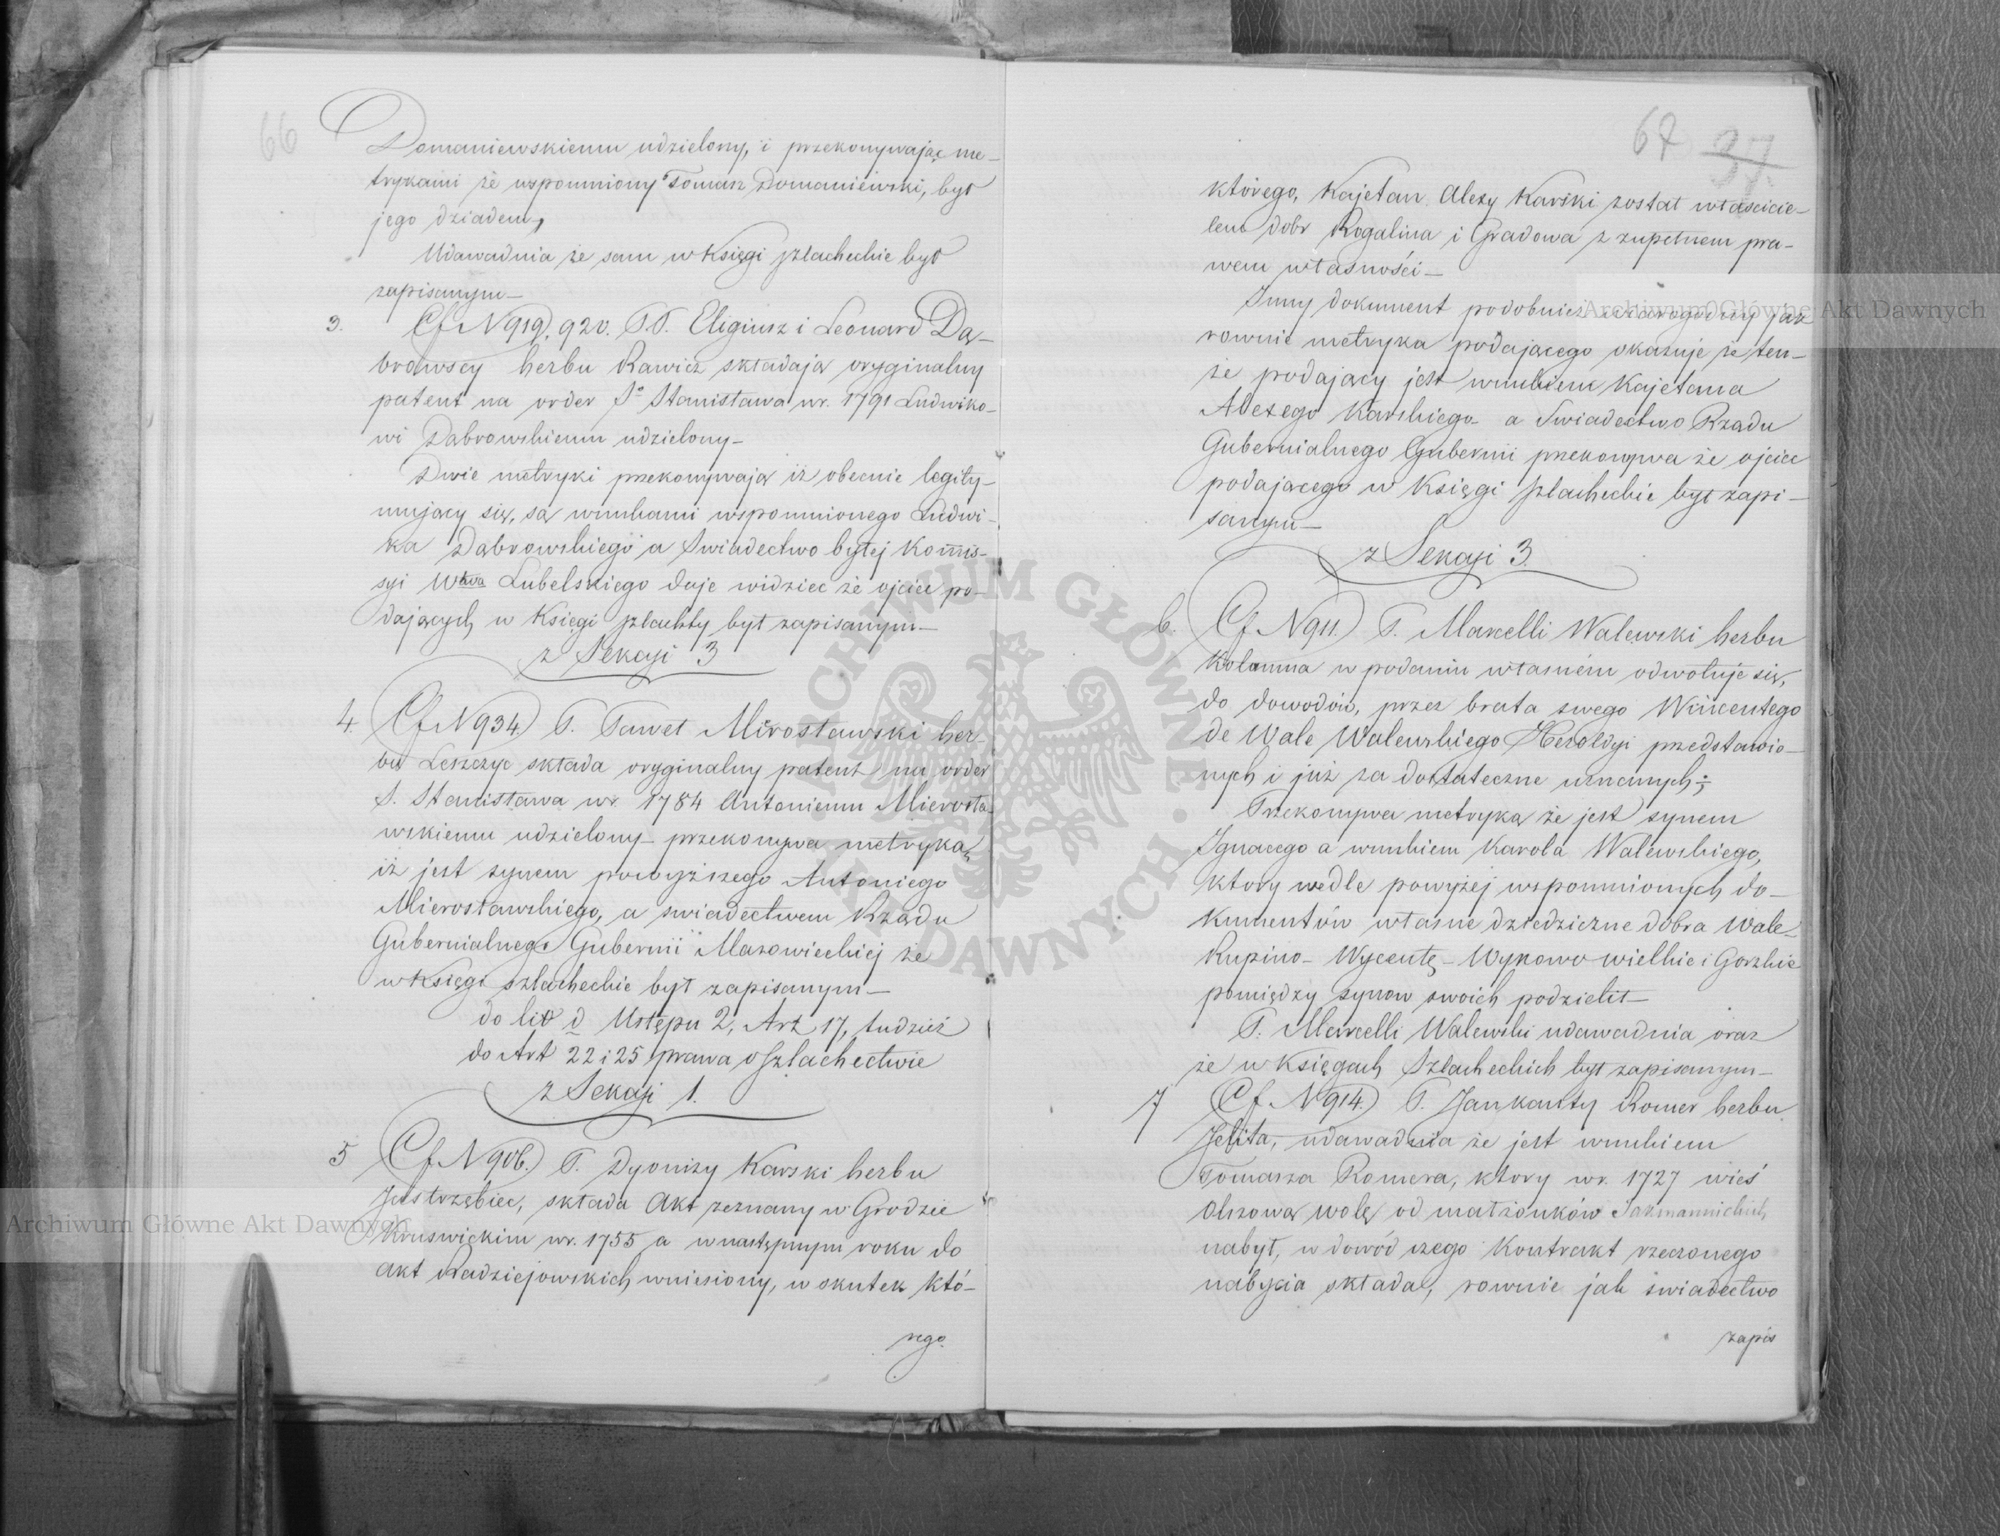 66
Domaniewskiemu udzielony, i przekonywając me-
trykami że wspomniony Tomasz Domaniewski, był
jego dziadem,
Udawadnia że sam w Księgi szlacheckie był
zapisanym—
3. (Cf N 919, 920. P.P. Eligiusz i Leonard Dą-
browscy herbu Rawicz składają oryginalny
patent na order Sº Stanisława w r. 1791 Ludwiko-
wi Dąbrowskiemu udzielony—
Dwie metryki przekonywają iż obecnie legity-
mujący się, są wnukami wspomnionego Ludwi-
ka Dąbrowskiego a Swiadectwo byłej Kommis-
syi Wtwa Lubelskiego daje widzieć że ojciec po-
dających w Księgi szlachty był zapisanym—
z Sekcyi 3
4. (Cf N 934.) P. Paweł Mirosławski her-
bu Leszczyc składa oryginalny patent na order
S. Stanisława w r. 1784 Antoniemu Mierosła-
wskiemu udzielony— przekonywa metryką,
iż jest synem powyższego Antoniego
Mierosławskiego, a swiadectwem Rządu
Gubernialnego Gubernii Mazowieckiej że
w Księgi szlacheckie był zapisanym—
do lit d Ustępu 2, Art 17, tudzież
do Art 22 i 25 prawa o szlachectwie
z Sekcyi 1.
5 (Cf N 906.) P. Dyonizy Karski herbu
Jastrzębiec, składa Akt zeznany w Grodzie
Kruswickim w r. 1755 a w następnym roku do
akt Radziejowskich wniesiony, w skutek któ-
rego.
67 37.
którego, Kajetan Alexy Karski został właścicie-
lem dobr Rogalina i Gradowa z zupełnem pra-
wem własności—
Inny dokument podobnież wiarogodny jak
rownie metryka podającego okazuje że ten-
że podający jest wnukiem Kajetana
Alexego Karskiego— a Swiadectwo Rządu
Gubernialnego Gubernii przekonywa że ojciec
podającego w Księgi szlacheckie był zapi-
sanym—
z Sekcyi 3.
6. (Cf N 911.) P. Marcelli Walewski herbu
Kolumna w podaniu własném odwołuje się,
do dowodów, przez brata swego Wincentego
de Wale Walewskiego Heroldyi przedstawio-
nych i już za dostateczne uznanych;
Przekonywa metryką że jest synem
Ignacego a wnukiem Karola Walewskiego,
ktory wedle powyżej wspomnionych do-
kumentów własne dziedziczne dobra Wale-
Rupino— Wycentę— Wykowo wielkie i Gorzkie
pomiędzy synow swoich podzielił—
P. Marcelli Walewski udawadnia oraz
że w Księgach Szlacheckich był zapisanym—
7 (Cf N 914.) P. Jankanty Romer herbu
Jelita, udawadnia że jest wnukiem
Tomasza Romera, ktory w r. 1727 wieś
Olszową wolę od małżonków
nabył, w dowód czego Kontrakt rzeczonego
nabycia składa, rownie jak świadectwo
zapis
Archiwum Główne Akt Dawnych
Archiwum Główne Akt Dawnych
ARCHIWUM GŁÓWNE AKT DAWNYCH